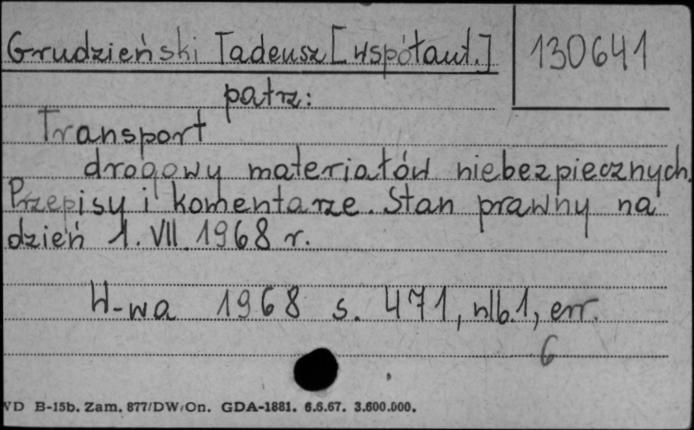 Grudzieński Tadeusz [współaut.]
130641
patrz:
Transport
drogowy materiałów niebezpiecznych.
Przepisy i komentarze. Stan prawny na
dzień 1. VII 1968 r.
W-wa 1968 s. 471, nlb.1, err.
6
VD B-15b. Zam. 877/DW/On. GDA-1881. 6.6.67. 3.600.000.